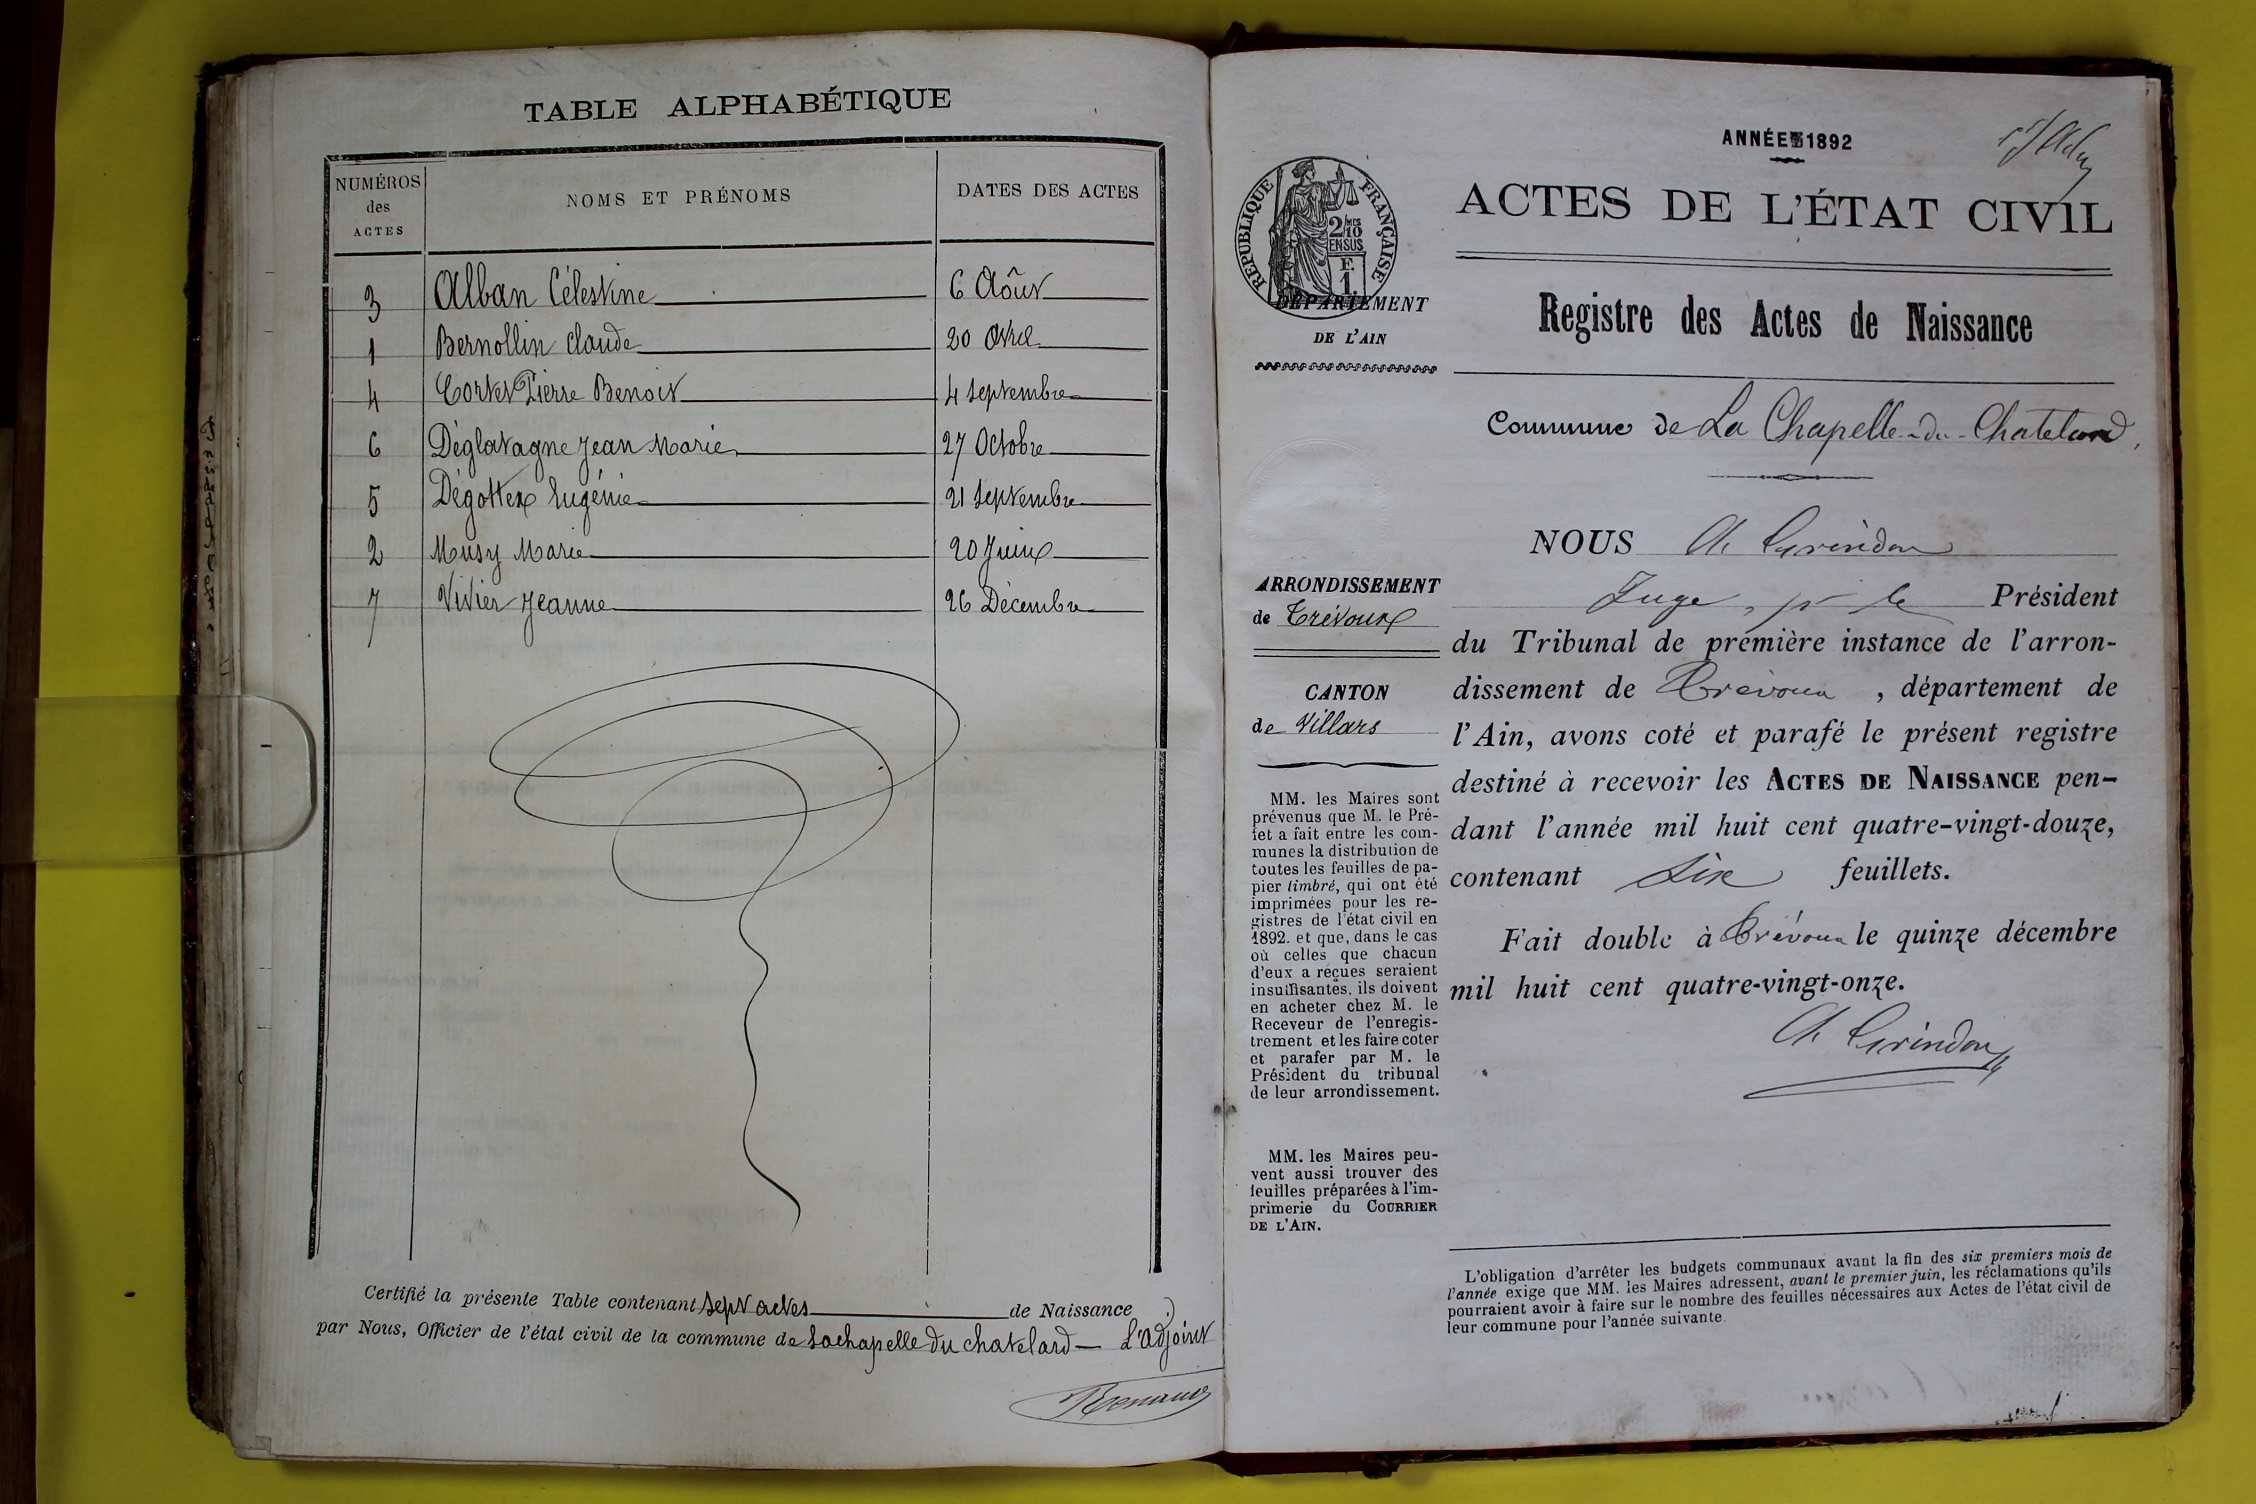 TABLE ALPHABÉTIQUE
NUMÉROS des ACTES
NOMS ET PRÉNOMS
DATES DES ACTES
3 Alban Célestine 6 Août
1 Bernollin Claude 20 Avril
4 Cortet Pierre Benoit 4 Septembre
6 Déglatagne Jean Marie 27 Octobre
5 Dégottex Eugénie 21 Septembre
2 Musy Marie 20 Juin
7 Vivier Jeanne 26 Décembre
Certifié la présente Table contenant sept actes de Naissance
par Nous, Officier de l'état civil de la commune de Lachapelle du chatelard — L'adjoint
Renaud
ANNÉE 1892
ACTES DE L'ÉTAT CIVIL
RÉPUBLIQUE FRANÇAISE
2/10 EN SUS
F. 1
DÉPARTEMENT
DE L'AIN
Registre des Actes de Naissance
Commune de La Chapelle-du-Chatelard,
ARRONDISSEMENT
de Trévoux
CANTON
de Villars
MM. les Maires sont
prévenus que M. le Pré-
fet a fait entre les com-
munes la distribution de
toutes les feuilles de pa-
pier timbré, qui ont été
imprimées pour les re-
gistres de l'état civil en
1892. et que, dans le cas
où celles que chacun
d'eux a reçues seraient
insuffisantes, ils doivent
en acheter chez M. le
Receveur de l'enregis-
trement et les faire coter
et parafer par M. le
Président du tribunal
de leur arrondissement.
MM. les Maires peu-
vent aussi trouver des
feuilles préparées à l'im-
primerie du COURRIER
DE L'AIN.
NOUS Ch. Girindon
Juge, pr le Président
du Tribunal de première instance de l'arron-
dissement de Trévoux, département de
l'Ain, avons coté et parafé le présent registre
destiné à recevoir les ACTES DE NAISSANCE pen-
dant l'année mil huit cent quatre-vingt-douze,
contenant Six feuillets.
Fait double à Trévoux le quinze décembre
mil huit cent quatre-vingt-onze.
Ch. Girindon
L'obligation d'arrêter les budgets communaux avant la fin des six premiers mois de
l'année exige que MM. les Maires adressent, avant le premier juin, les réclamations qu'ils
pourraient avoir à faire sur le nombre des feuilles nécessaires aux Actes de l'état civil de
leur commune pour l'année suivante.